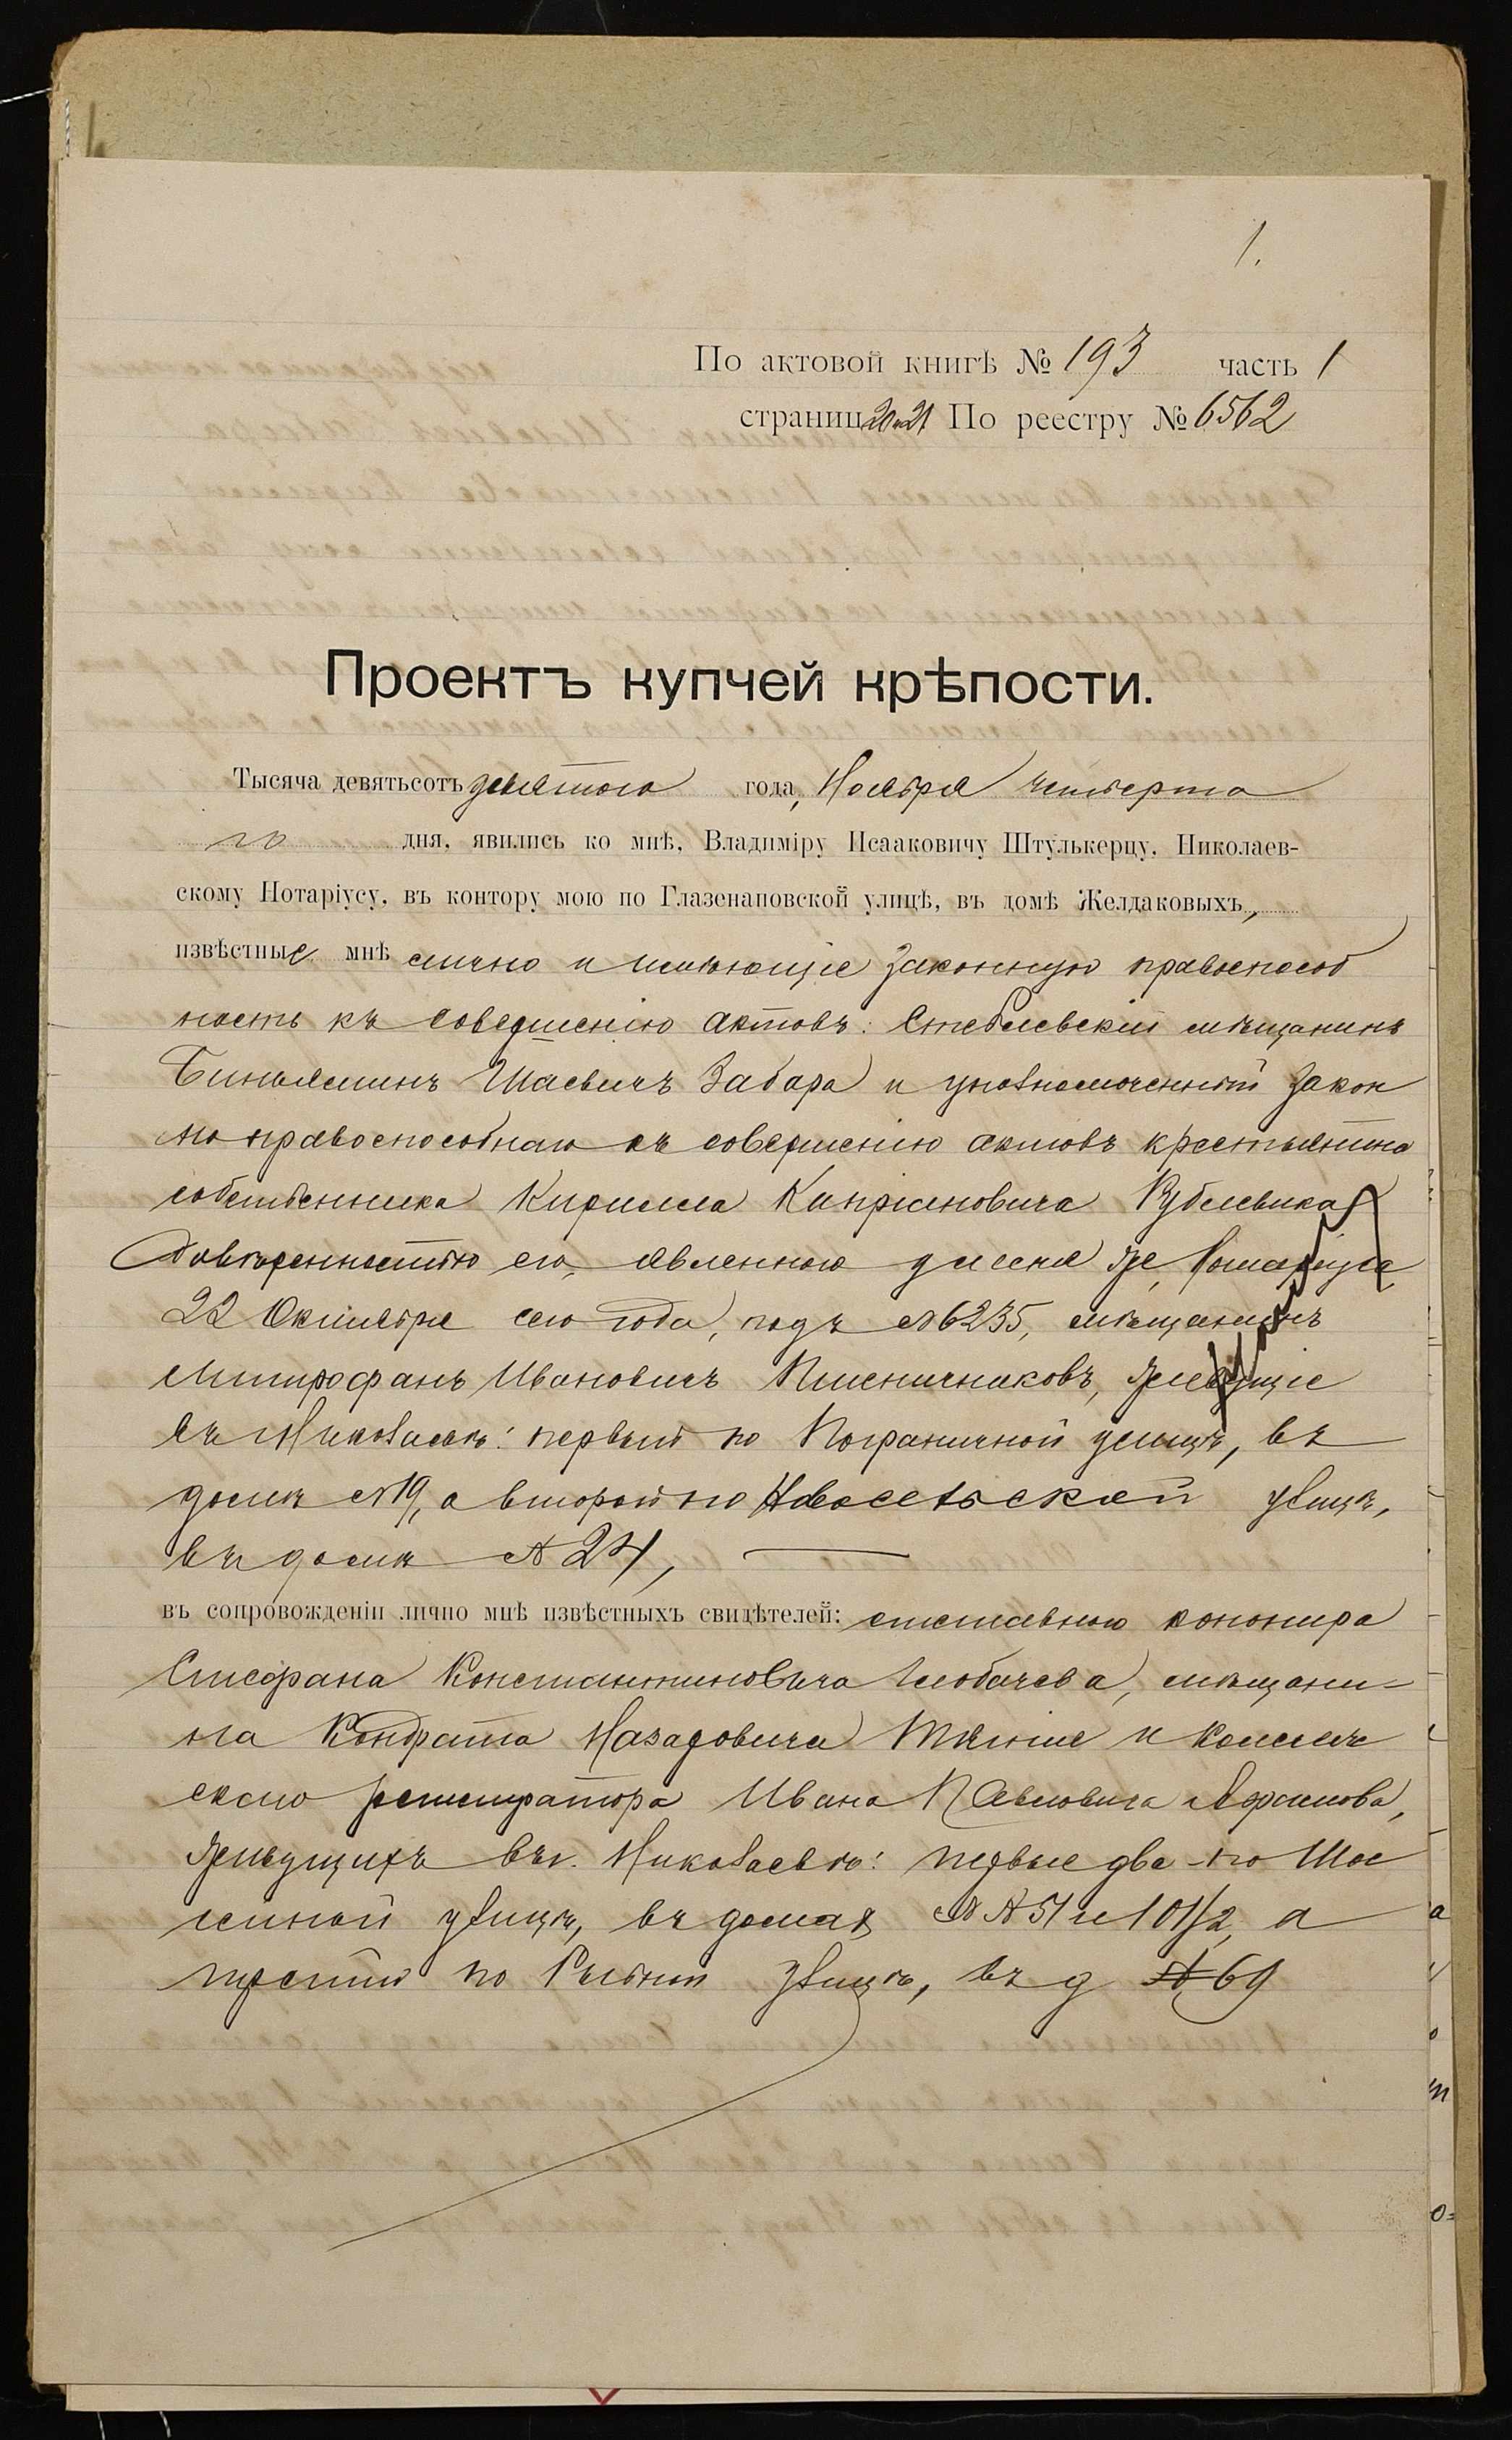 1.
По актовой книгѣ № 193 часть 1
страниц 20-21 По реестру № 6562
Проектъ купчей крѣпости.
Тысяча девятьсотъ девятого года, Ноября четверта
го дня, явились ко мнѣ, Владиміру Исааковичу Штулькерцу, Николаев-
скому Нотаріусу, въ контору мою по Глазенаповской улицѣ, въ домѣ Желдаковыхъ,
извѣстные мнѣ лично и имѣющіе законную правоспособ
ность къ совершенію актовъ: Стеблевскій мѣщанинъ
Биньяминъ Шаевичъ Забара и уполномоченный закон
но правоспособнаго къ совершенію актовъ крестьянина
собственника Кирилла Кипріановича
довѣренностью его, явленною у меня же, Нотаріуса
22 Октября сего года, подъ №6235, мѣщанинъ
Митрофанъ Ивановичъ Пшеничниковъ, живущіе
въ Николаевѣ: первый по Пограничной улицѣ, въ
домѣ №19, а второй по Новосельской улицѣ,
въ домѣ № 24,
въ сопровожденіи лично мнѣ извѣстныхъ свидѣтелей: отставного канонира
Стефана Константиновича мѣщани-
на Кондрата Назаровича и коллеж
скаго регистратора Ивана Павловича
живущихъ въ г. Николаевѣ: первые два по
улицѣ, въ домахъ №№ 51 и 101/2, а
третій по Рыбной улицѣ, въ д № 69